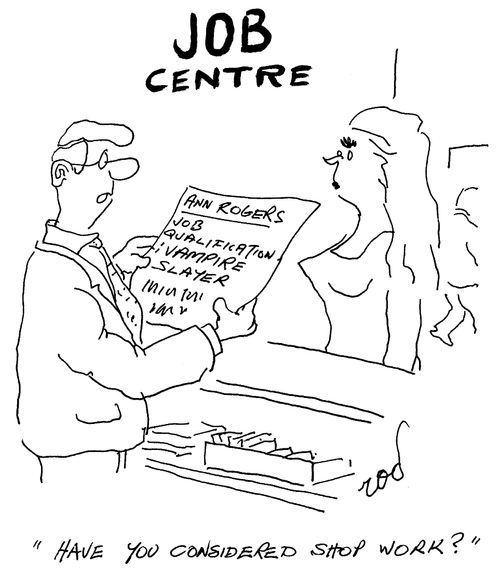 JOB
CENTRE
ANN ROGERS
JOB
QUALIFICATION
: VAMPIRE
SLAYER
rod
"HAVE YOU CONSIDERED SHOP WORK?"